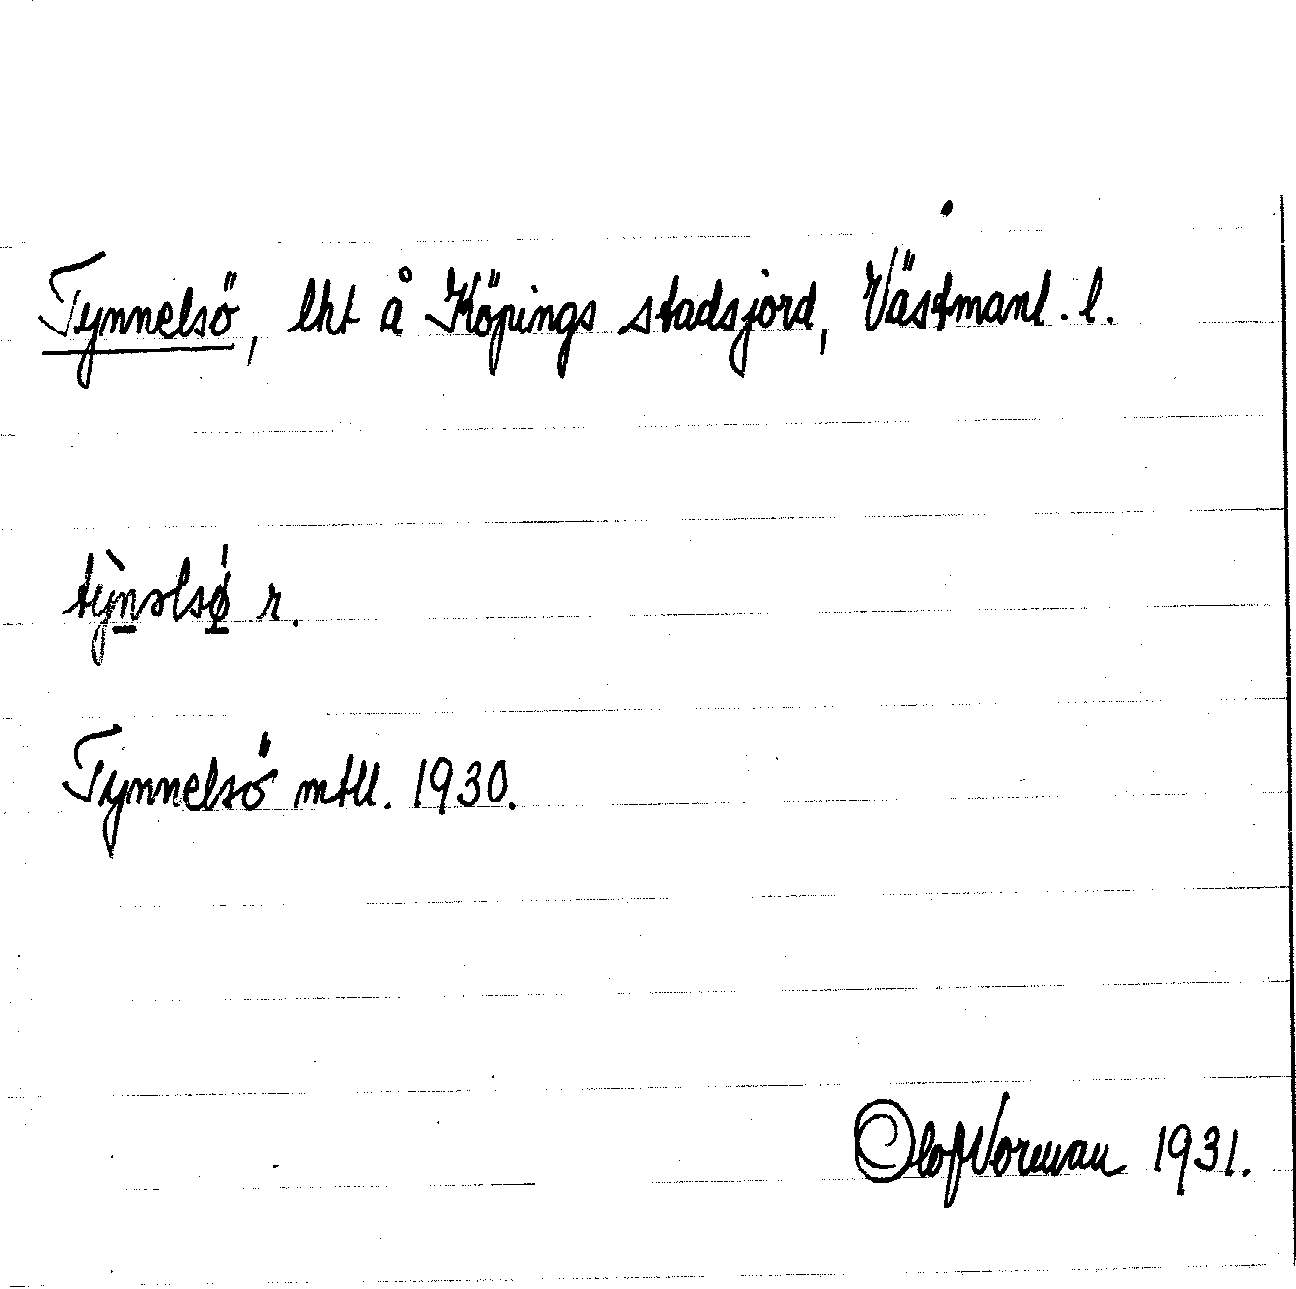 Tynnelsö, lht å Köpings stadsjord, Västmanl. l.
tỳn̲əlsǿ̲ r.
Tynnelsö mtll. 1930.
Olof Norman 1931.